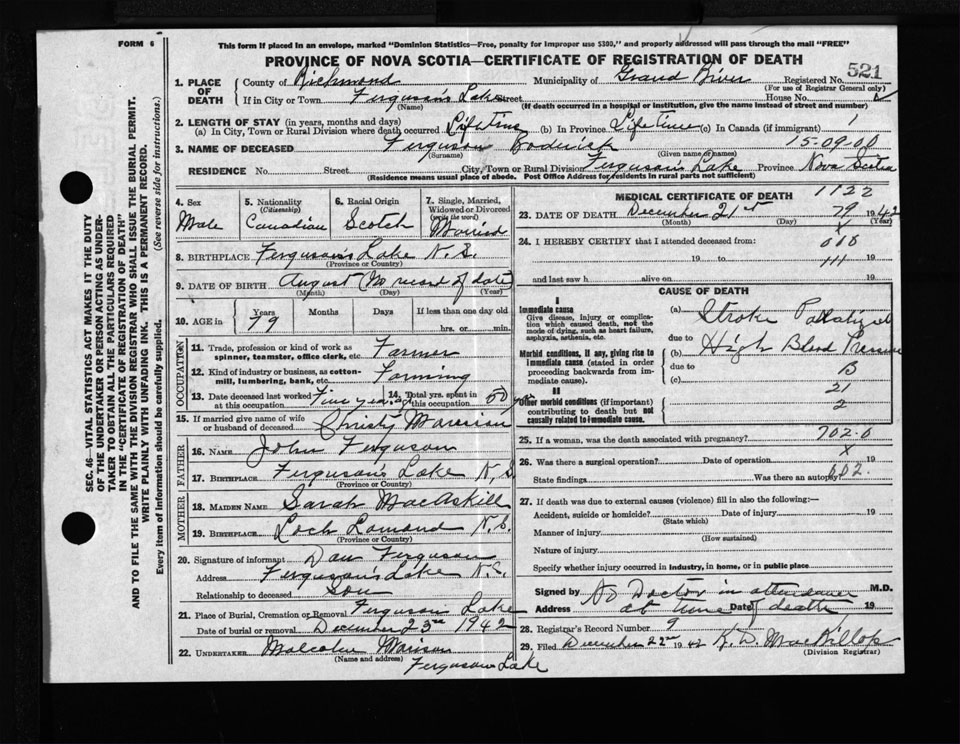 FORM 6
This form if placed in an envelope, marked "Dominion Statistics—Free, penalty for improper use $300," and properly addressed will pass through the mail "FREE"
PROVINCE OF NOVA SCOTIA—CERTIFICATE OF REGISTRATION OF DEATH
SEC. 46—VITAL STATISTICS ACT MAKES IT THE DUTY
OF THE UNDERTAKER OR PERSON ACTING AS UNDER-
TAKER TO OBTAIN ALL THE PARTICULARS REQUIRED
IN THE "CERTIFICATE OF REGISTRATION OF DEATH"
AND TO FILE THE SAME WITH THE DIVISION REGISTRAR WHO SHALL ISSUE THE BURIAL PERMIT.
WRITE PLAINLY WITH UNFADING INK. THIS IS A PERMANENT RECORD.
Every item of information should be carefully supplied. (See reverse side for instructions.)
1. PLACE OF DEATH County of Richmond Municipality of Grand River Registered No. 521
(For use of Registrar General only)
If in City or Town Ferguson's Lake Street House No.
(Name) (If death occurred in a hospital or institution, give the name instead of street and number)
2. LENGTH OF STAY (in years, months and days)
(a) In City, Town or Rural Division where death occurred Lifetime (b) In Province Lifetime (c) In Canada (if immigrant) 1
3. NAME OF DECEASED Ferguson Roderick 15-09-00
(Surname) (Given name or names)
RESIDENCE No. Street City, Town or Rural Division Ferguson's Lake Province Nova Scotia
(Residence means usual place of abode. Post Office Address for residents in rural parts not sufficient)
4. Sex Male
5. Nationality (Citizenship) Canadian
6. Racial Origin Scotch
7. Single, Married, Widowed or Divorced (write the word) Married
8. BIRTHPLACE Ferguson's Lake N.S.
(Province or Country)
9. DATE OF BIRTH August (No record of date)
(Month) (Day) (Year)
10. AGE in Years 79 Months Days If less than one day old
hrs. or min.
OCCUPATION
11. Trade, profession or kind of work as spinner, teamster, office clerk, etc. Farmer
12. Kind of industry or business, as cotton-mill, lumbering, bank, etc. Farming
13. Date deceased last worked at this occupation Five years ago 14. Total yrs. spent in this occupation 50 yrs
15. If married give name of wife or husband of deceased Christy Morrison
FATHER
16. NAME John Ferguson
17. BIRTHPLACE Ferguson's Lake N.S.
(Province or Country)
MOTHER
18. MAIDEN NAME Sarah MacAskill
19. BIRTHPLACE Loch Lomond N.S.
(Province or Country)
20. Signature of informant Dan Ferguson
Address Ferguson's Lake N.S.
Relationship to deceased Son
21. Place of Burial, Cremation or Removal Ferguson Lake
Date of burial or removal December 23rd 1942
22. UNDERTAKER Malcolm Morrison
(Name and address) Ferguson Lake
MEDICAL CERTIFICATE OF DEATH 1122
23. DATE OF DEATH December 21st 79 1942
(Month) (Day) (Year)
X
24. I HEREBY CERTIFY that I attended deceased from: 010
19 to 111 19
and last saw h alive on 19
CAUSE OF DEATH
I
Immediate cause
Give disease, injury or complication which caused death, not the mode of dying, such as heart failure, asphyxia, asthenia, etc.
(a) Stroke Paralysed
due to
Morbid conditions, if any, giving rise to immediate cause (stated in order proceeding backwards from immediate cause).
(b) High Blood Pressure
due to B
(c) 21
II
Other morbid conditions (if important) contributing to death but not causally related to immediate cause.
2
25. If a woman, was the death associated with pregnancy? 702.0
X
26. Was there a surgical operation? Date of operation 19
State findings Was there an autopsy? 602.
27. If death was due to external causes (violence) fill in also the following:—
Accident, suicide or homicide? Date of injury 19
(State which)
Manner of injury
(How sustained)
Nature of injury
Specify whether injury occurred in industry, in home, or in public place
Signed by No Doctor in attendance M.D.
Address at time Date of death 19
28. Registrar's Record Number 9
29. Filed December 22nd 1942 K. D. MacKillop
(Division Registrar)